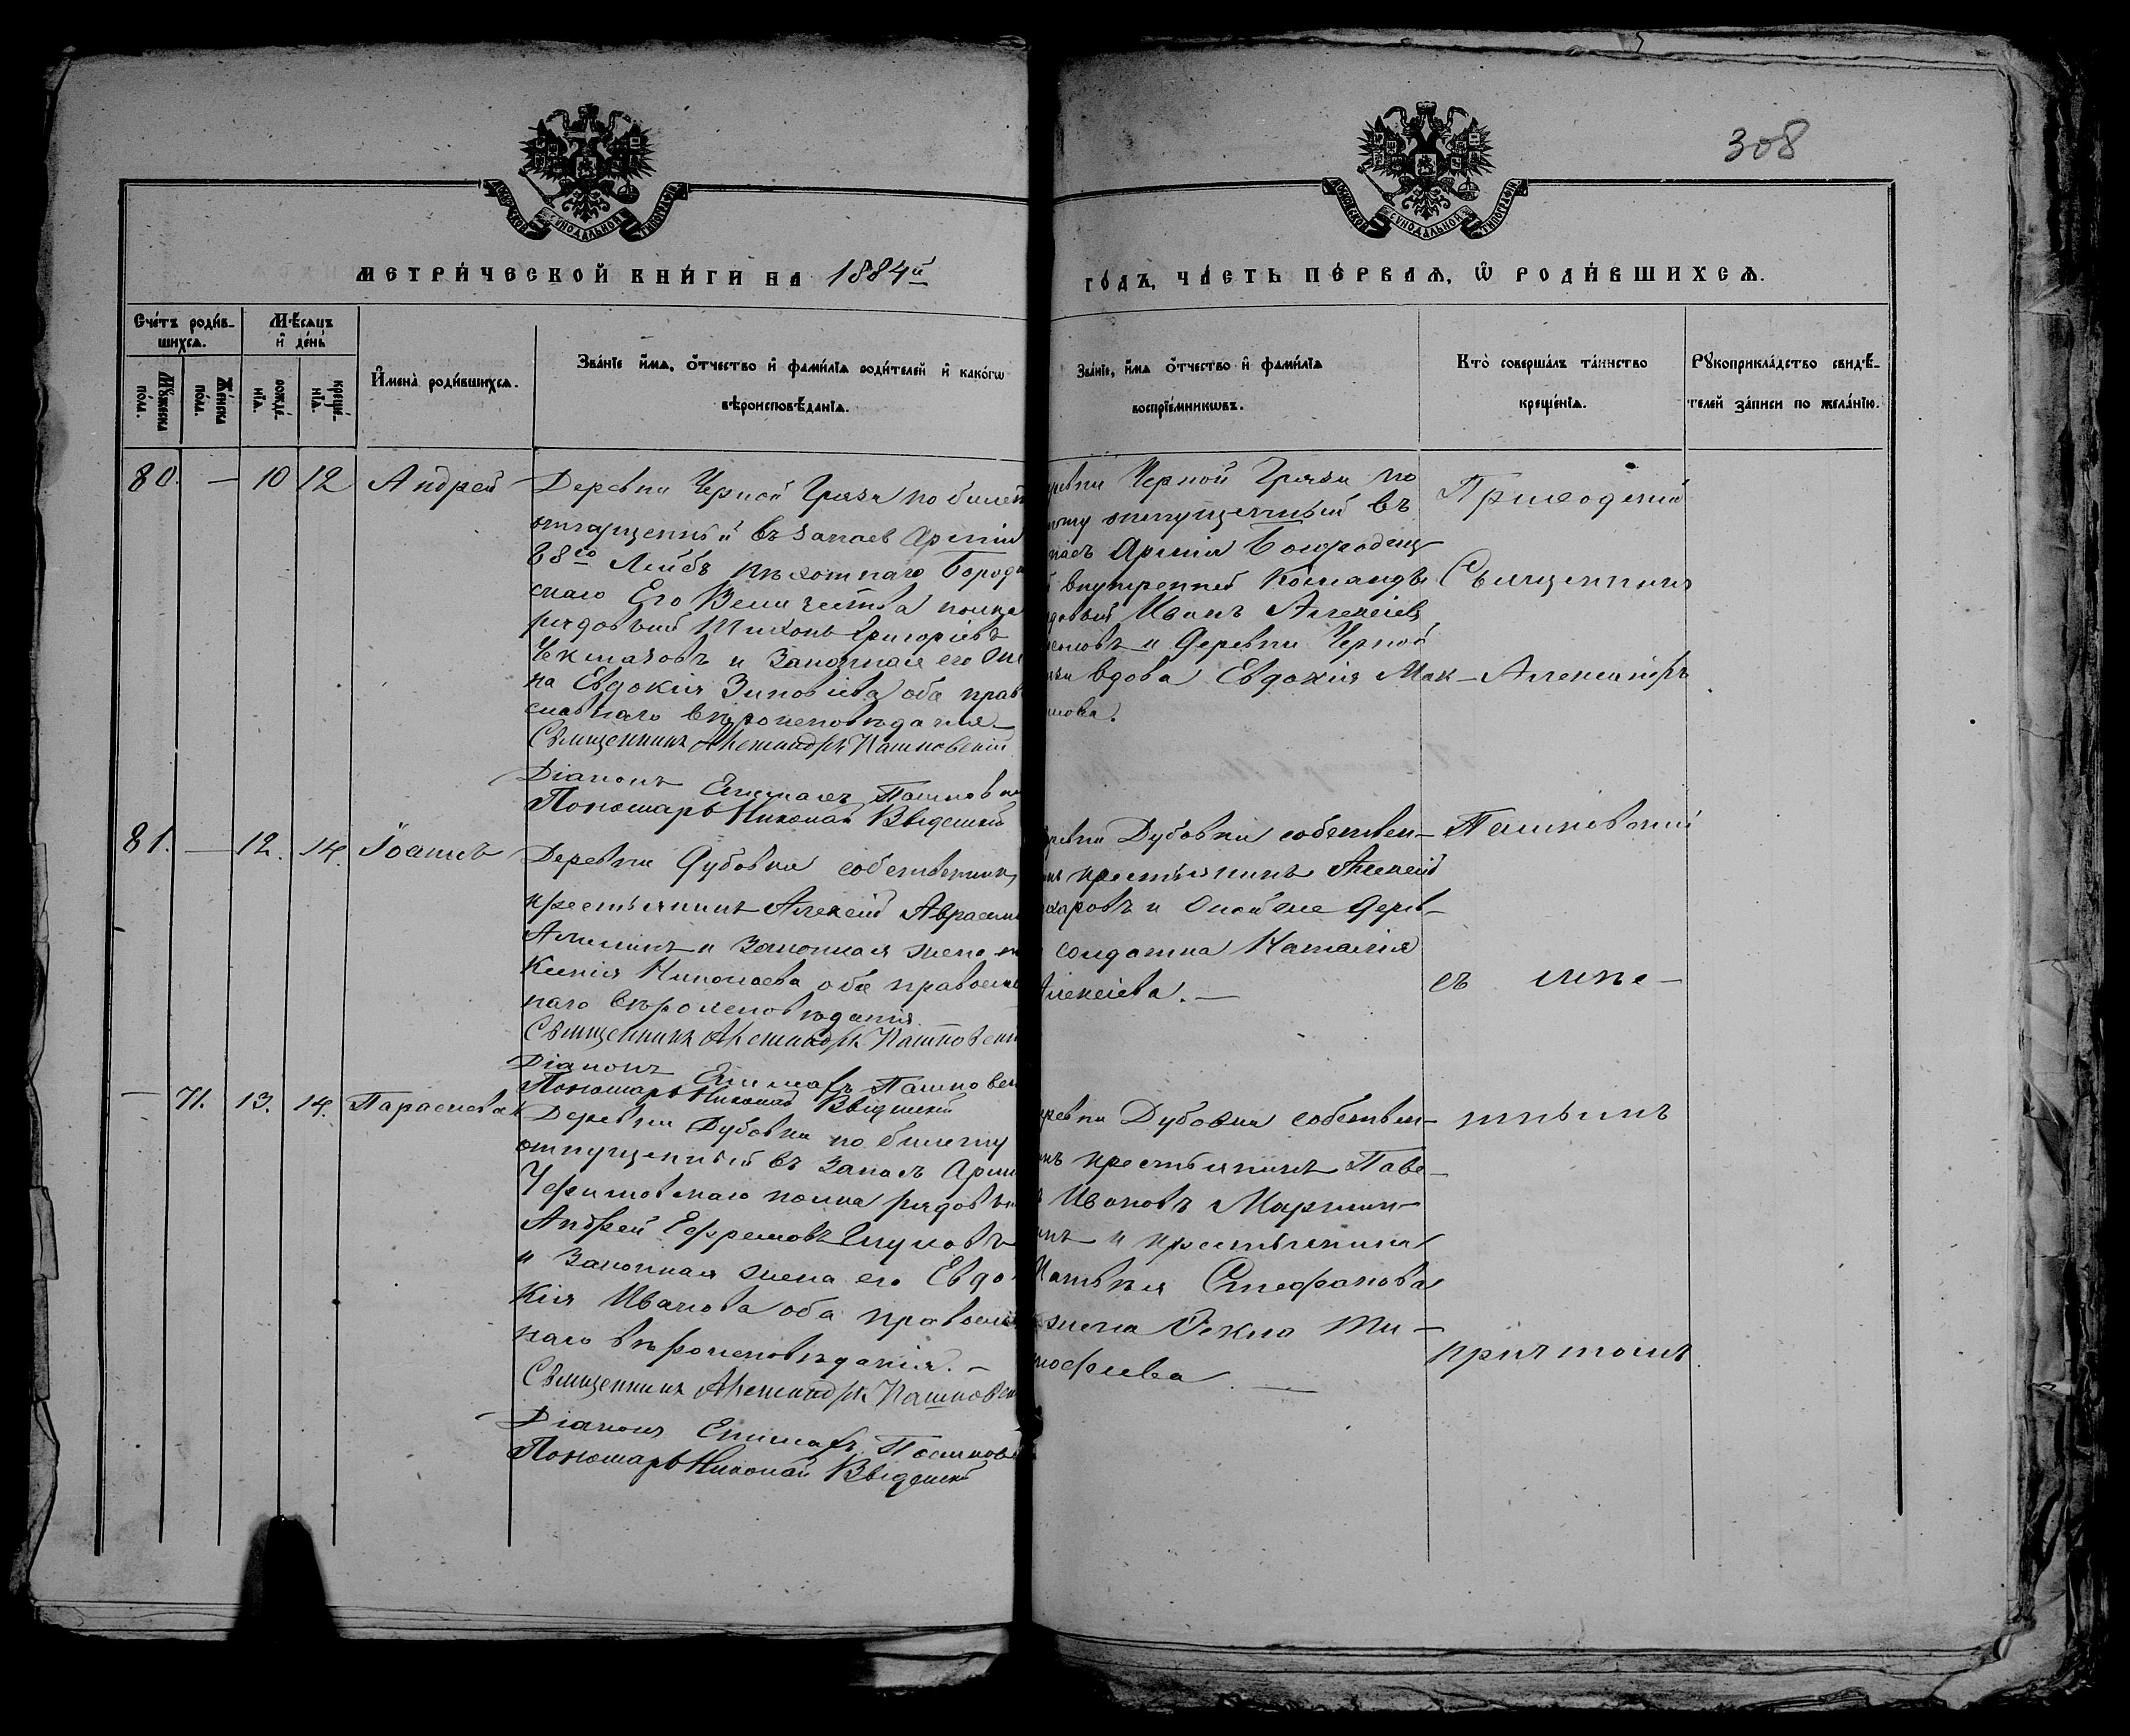 308
МЕТРИЧЕСКОЙ КНИГИ НА 1884й
ГОДЪ, ЧАСТЬ ПЕРВАЯ, Ѡ РОДИВШИХСЯ.
Счетъ родив-
шихся.
Мужеска пола.
Женска пола.
Мѣсяцъ и день
рождения.
крещения.
Имена родившихся.
Званіе имя, отчество и фамилія родителей и какогѡ
вѣроисповѣданія.
Званіе, имя отчество и фамилія
воспріемниковъ.
Кто совершалъ таинство
крещенія.
Рукоприкладство свидѣ-
телей записи по желанію.
80. — 10 12 Андрей
Деревни Черной Грязи по билет
отпущенный въ запасъ Арміи
68го Лейбъ пѣхотнаго Бород
скаго Его Величества полка
рядовый Тихонъ Григоріевъ
и Законная его
на Евдокія Зиновіева оба прав
славнаго вѣроисповѣданія
Священникъ Александръ Пашковскій
Діаконъ Пашков
Пономарь Николай Введенскій
Черной Грязи по
отпущенный въ
Арміи
внутренней Команды
Иванъ Алексѣев
и Деревни Черной
вдова Евдокія Мак-
Приходскій
Священникъ
Александръ
Пашковскій
съ мѣс-
тнымъ
причтомъ.
81. — 12. 14. Іоаннъ
Деревни Дубовки собственник
крестьянинъ Алексѣй Аврам
и Законная жена
Николаева оба правосл
наго вѣроисповѣданія
Священникъ Александръ Пашковскі
Діаконъ Пашковс
Пономарь Николай Введенскій
Дубовки собствен-
крестьянинъ Алексѣй
и Онойже Дерев-
солдатка Наталія
Алексѣева. —
— 71. 13. 14. Параскева
Деревни Дубовки по билету
отпущенный въ Запасъ Арміи
полка рядовы
Андрей Ефремовъ
и Законная жена его Евдо
кія Иванова оба правосл
наго вѣроисповѣданія. —
Священникъ Александръ Пашковск
Діаконъ Пашков
Пономарь Николай Введенскій
Дубовки собствен-
крестьянинъ Паве-
Ивановъ Мартын-
и крестьянина
Стефанова
жена Ѳекла Ти-
мофеева. —